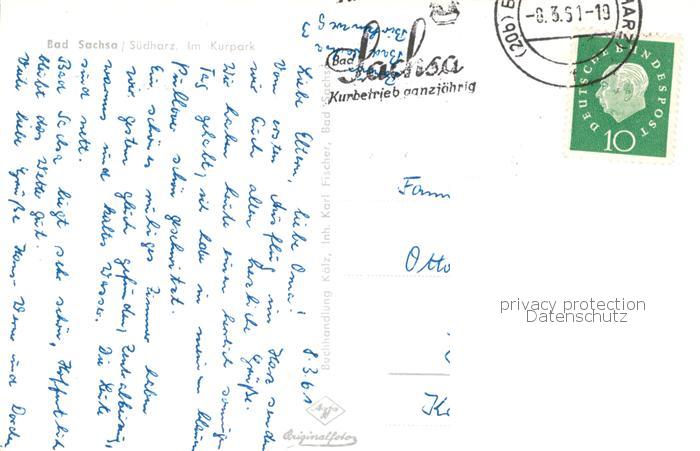 Bad Sachsa / Südharz. Im Kurpark
(20b) B HARZ
-8.3.61-19
Bad Sachsa
Kurbetrieb ganzjährig
DEUTSCHE BUNDESPOST
10
8.3.61
Liebe Eltern, liebe Oma!
Vom ersten Ausflug im Harz senden
wir Euch allen herzliche Grüße.
Wir haben heute einen herrlich sonnigen
Tag gehabt, ich habe in meinem blauen
Pullover schön geschwitzt.
Ein schönes ruhiges Zimmer haben
wir gestern gleich gefunden, Zentralheizung,
warmes und kaltes Wasser. Die Leute
sind nett.
Bad Sachsa liegt sehr schön, hoffentlich
bleibt das Wetter gut.
Viele liebe Grüße Hans-Werner und
Buchhandlung Kölz, Inh. Karl Fischer, Bad Sachsa
Fam
Otto
Ke
Agfa
Originalfoto
privacy protection
Datenschutz